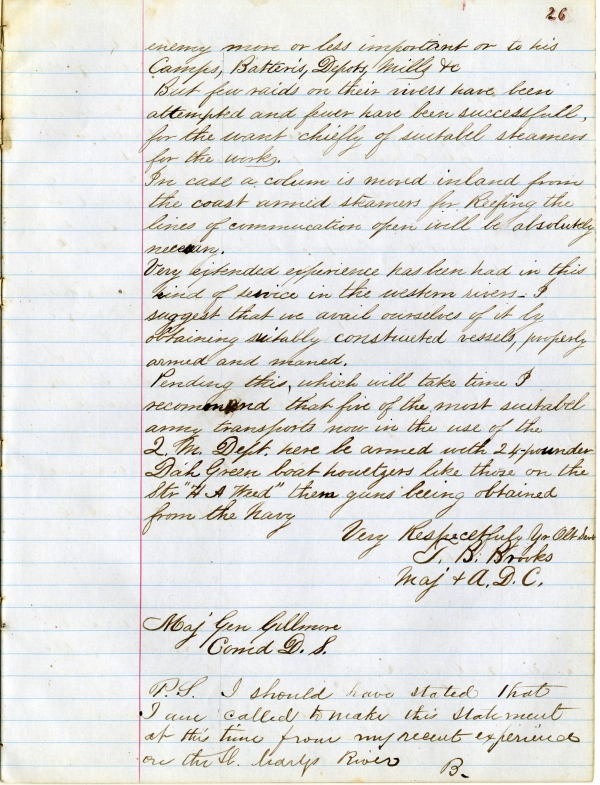 26
enemy more or less important or to his
Camps, Batteris, Depots, Mills &c
But few raids on their rivers have been
attempted and fewer have been successfull,
for the want chiefly of suitabel steamers
for the work.
In case a colum is moved inland from
the coast armed steamers for Keeping the
lines of commucation open will be absolutely
necessary.
Very extended experience has been had in this
kind of service in the western rivers - I
suggest that we avail ourselves of it by
obtaining suitably constructed vessels, properly
armed and maned.
Pending this, which will take time I
recommend that five of the most suitabel
army transports now in the use of the
Q. M. Dept. here be armed with 24-pounder
Dahl Green boat howetzers like those on the
Str "H A Weed" them guns beeing obtained
from the Navy
Very Respectfuly Yr Obt Servt
T. B. Brooks
Maj & A. D. C.
Maj Gen Gillmore
Comd D. S.
P.S. I should have stated that
I am called to make this statement
at this time from my recent experience
on the St. Marys River
B.